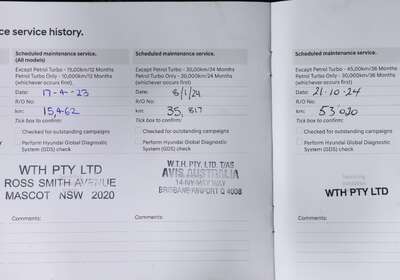 ce service history.
Scheduled maintenance service.
(All models)
Except Petrol Turbo - 15,000km/12 Months
Petrol Turbo Only - 10,000km/12 Months
(whichever occurs first).
Date: 17-4-23
R/O No:
km: 15,462
Tick box to confirm:
Checked for outstanding campaigns
Perform Hyundai Global Diagnostic
System (GDS) check
WTH PTY LTD
ROSS SMITH AVENUE
MASCOT NSW 2020
Comments:
Scheduled maintenance service.
Except Petrol Turbo - 30,000km/24 Months
Petrol Turbo Only - 20,000km/24 Months
(whichever occurs first).
Date: 8/1/24
R/O No:
km: 35,817
Tick box to confirm:
Checked for outstanding campaigns
Perform Hyundai Global Diagnostic
System (GDS) check
W.T.H. PTY. LTD. T/AS
AVIS AUSTRALIA
BRISBANE AIRPORT Q 4008
Comments:
Scheduled maintenance service.
Except Petrol Turbo - 45,000km/36 Months
Petrol Turbo Only - 30,000km/36 Months
(whichever occurs first).
Date: 21-10-24
R/O No:
km: 53020
Tick box to confirm:
Checked for outstanding campaigns
Perform Hyundai Global Diagnostic
System (GDS) check
WTH PTY LTD
Comments: